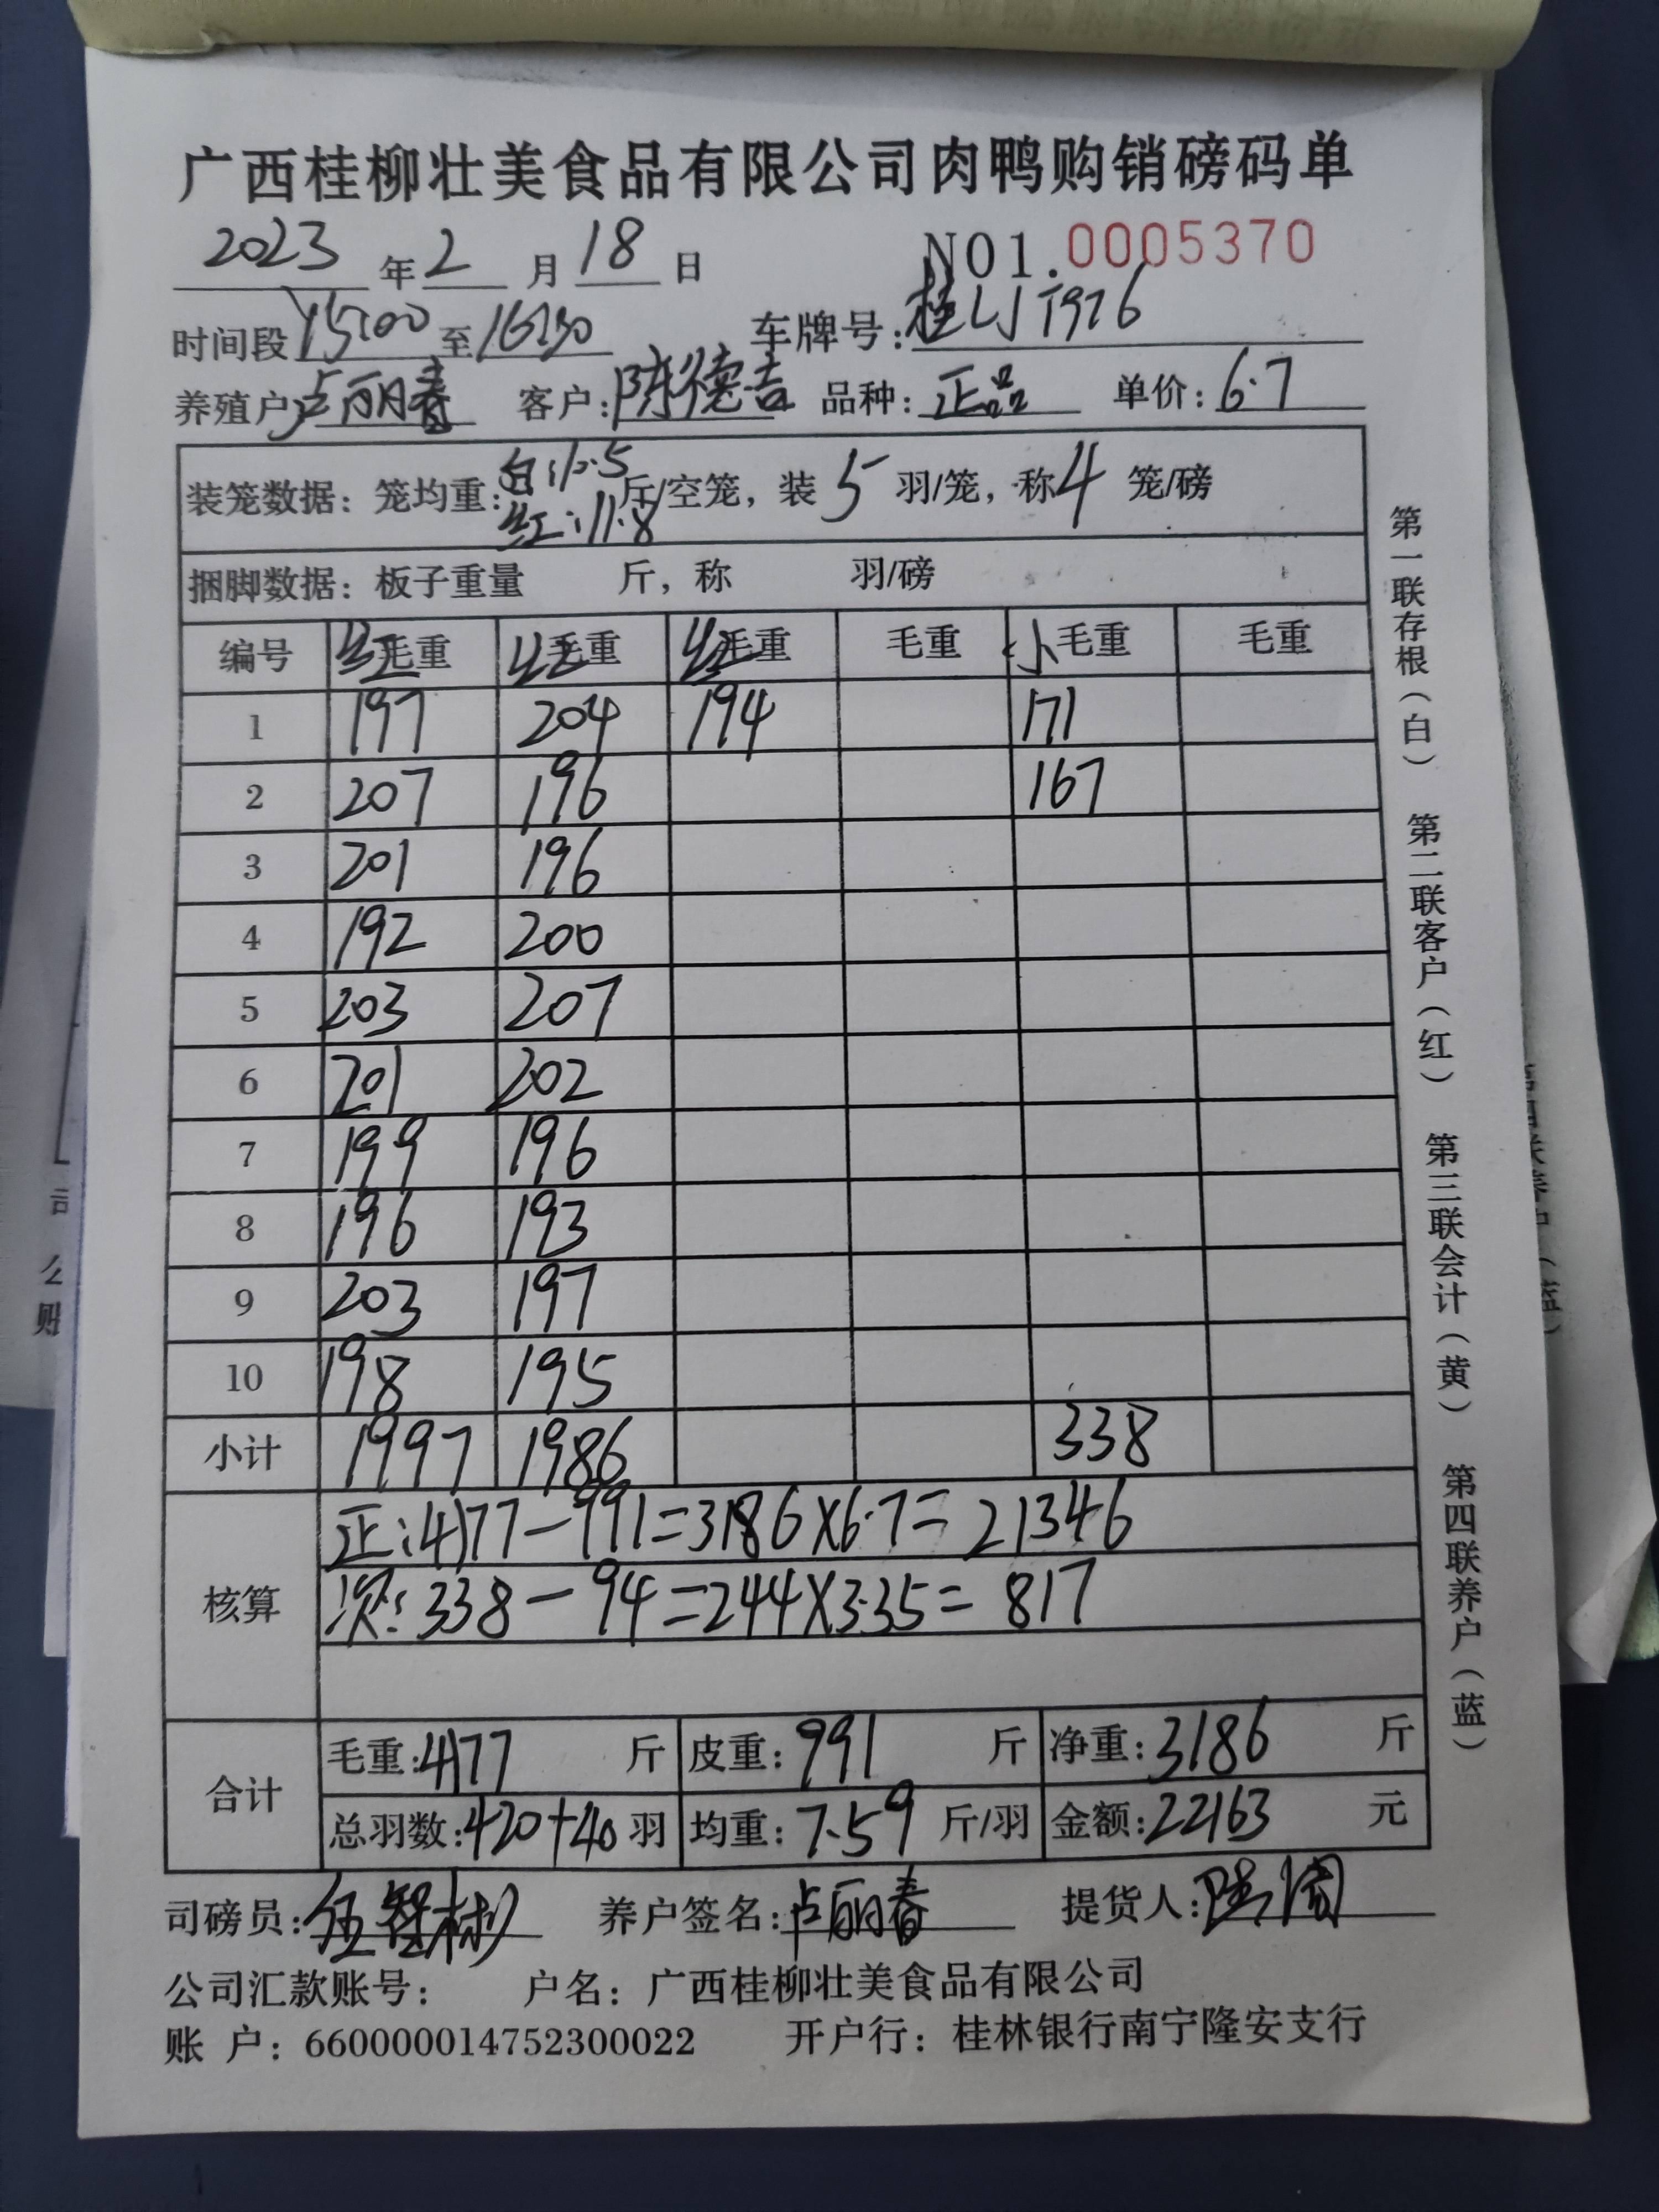 广西桂柳壮美食品有限公司肉鸭购销磅码单
2023年2月18日 NO1.0005370
时间段15:00至16:30 车牌号:桂
养殖户:卢丽春 客户:陈德吉 品种:正品 单价:6.7
装笼数据:笼均重:白:12.5 红:11.8斤/空笼,装5羽/笼,称4笼/磅
捆脚数据:板子重量 斤,称 羽/磅
编号 红毛重 红毛重 红毛重 毛重 小毛重 毛重
1 197 204 194 171
2 207 196 167
3 201 196
4 192 200
5 203 207
6 201 202
7 199 196
8 196 193
9 203 197
10 198 195
小计 1997 1986 338
核算 正:4177-991=3186×6.7=21346
次:338-94=244×3.35=817
合计 毛重:4177斤 皮重:991斤 净重:3186斤
总羽数:420+40羽 均重:7.59斤/羽 金额:22163元
司磅员:伍智彬 养户签名:卢丽春 提货人:
公司汇款账号: 户名:广西桂柳壮美食品有限公司
账 户:660000014752300022 开户行:桂林银行南宁隆安支行
第一联存根(白) 第二联客户(红) 第三联会计(黄) 第四联养户(蓝)